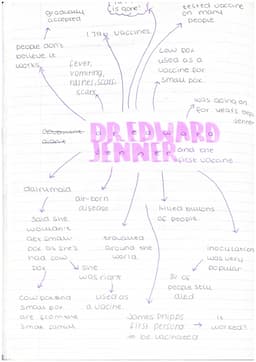 is gone!
gradually
accepted
1797 vaccines.
tested vaccine
on many
people
people don't
believe it
works
fever,
vomiting,
rashes, scars
cow pox
used as a
vaccine for
small pox.
was going on
for years before
DR EDWARD
JENNER
and the
first vaccine.
dairymaid
air-born
disease
killed billions
of people.
said she
wouldn't
get small
pox as she's
had cow
pox
she
was right
travelled
around the
world.
inoculation
was very
popular
3% of
people still
died
cowpox and
small pox
are
used as
a vaccine.
James Phipps
first person
to be vaccinated
it
worked!